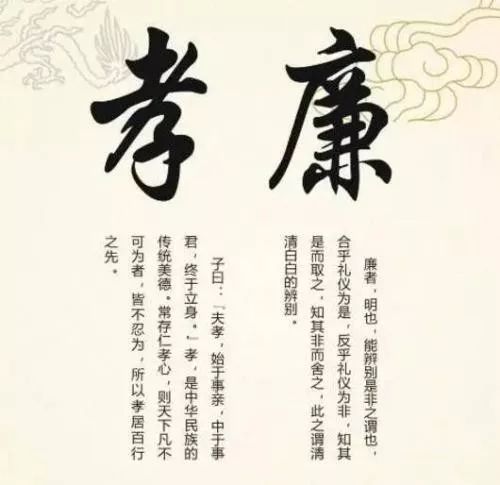 孝 廉
廉者，明也，能辨别是非之谓也，
合乎礼仪为是，反乎礼仪为非，知其
是而取之，知其非而舍之，此之谓清
清白白的辨别。
子曰：「夫孝，始于事亲，中于事
君，终于立身。」孝，是中华民族的
传统美德。常存仁孝心，则天下凡不
可为者，皆不忍为，所以孝居百行
之先。